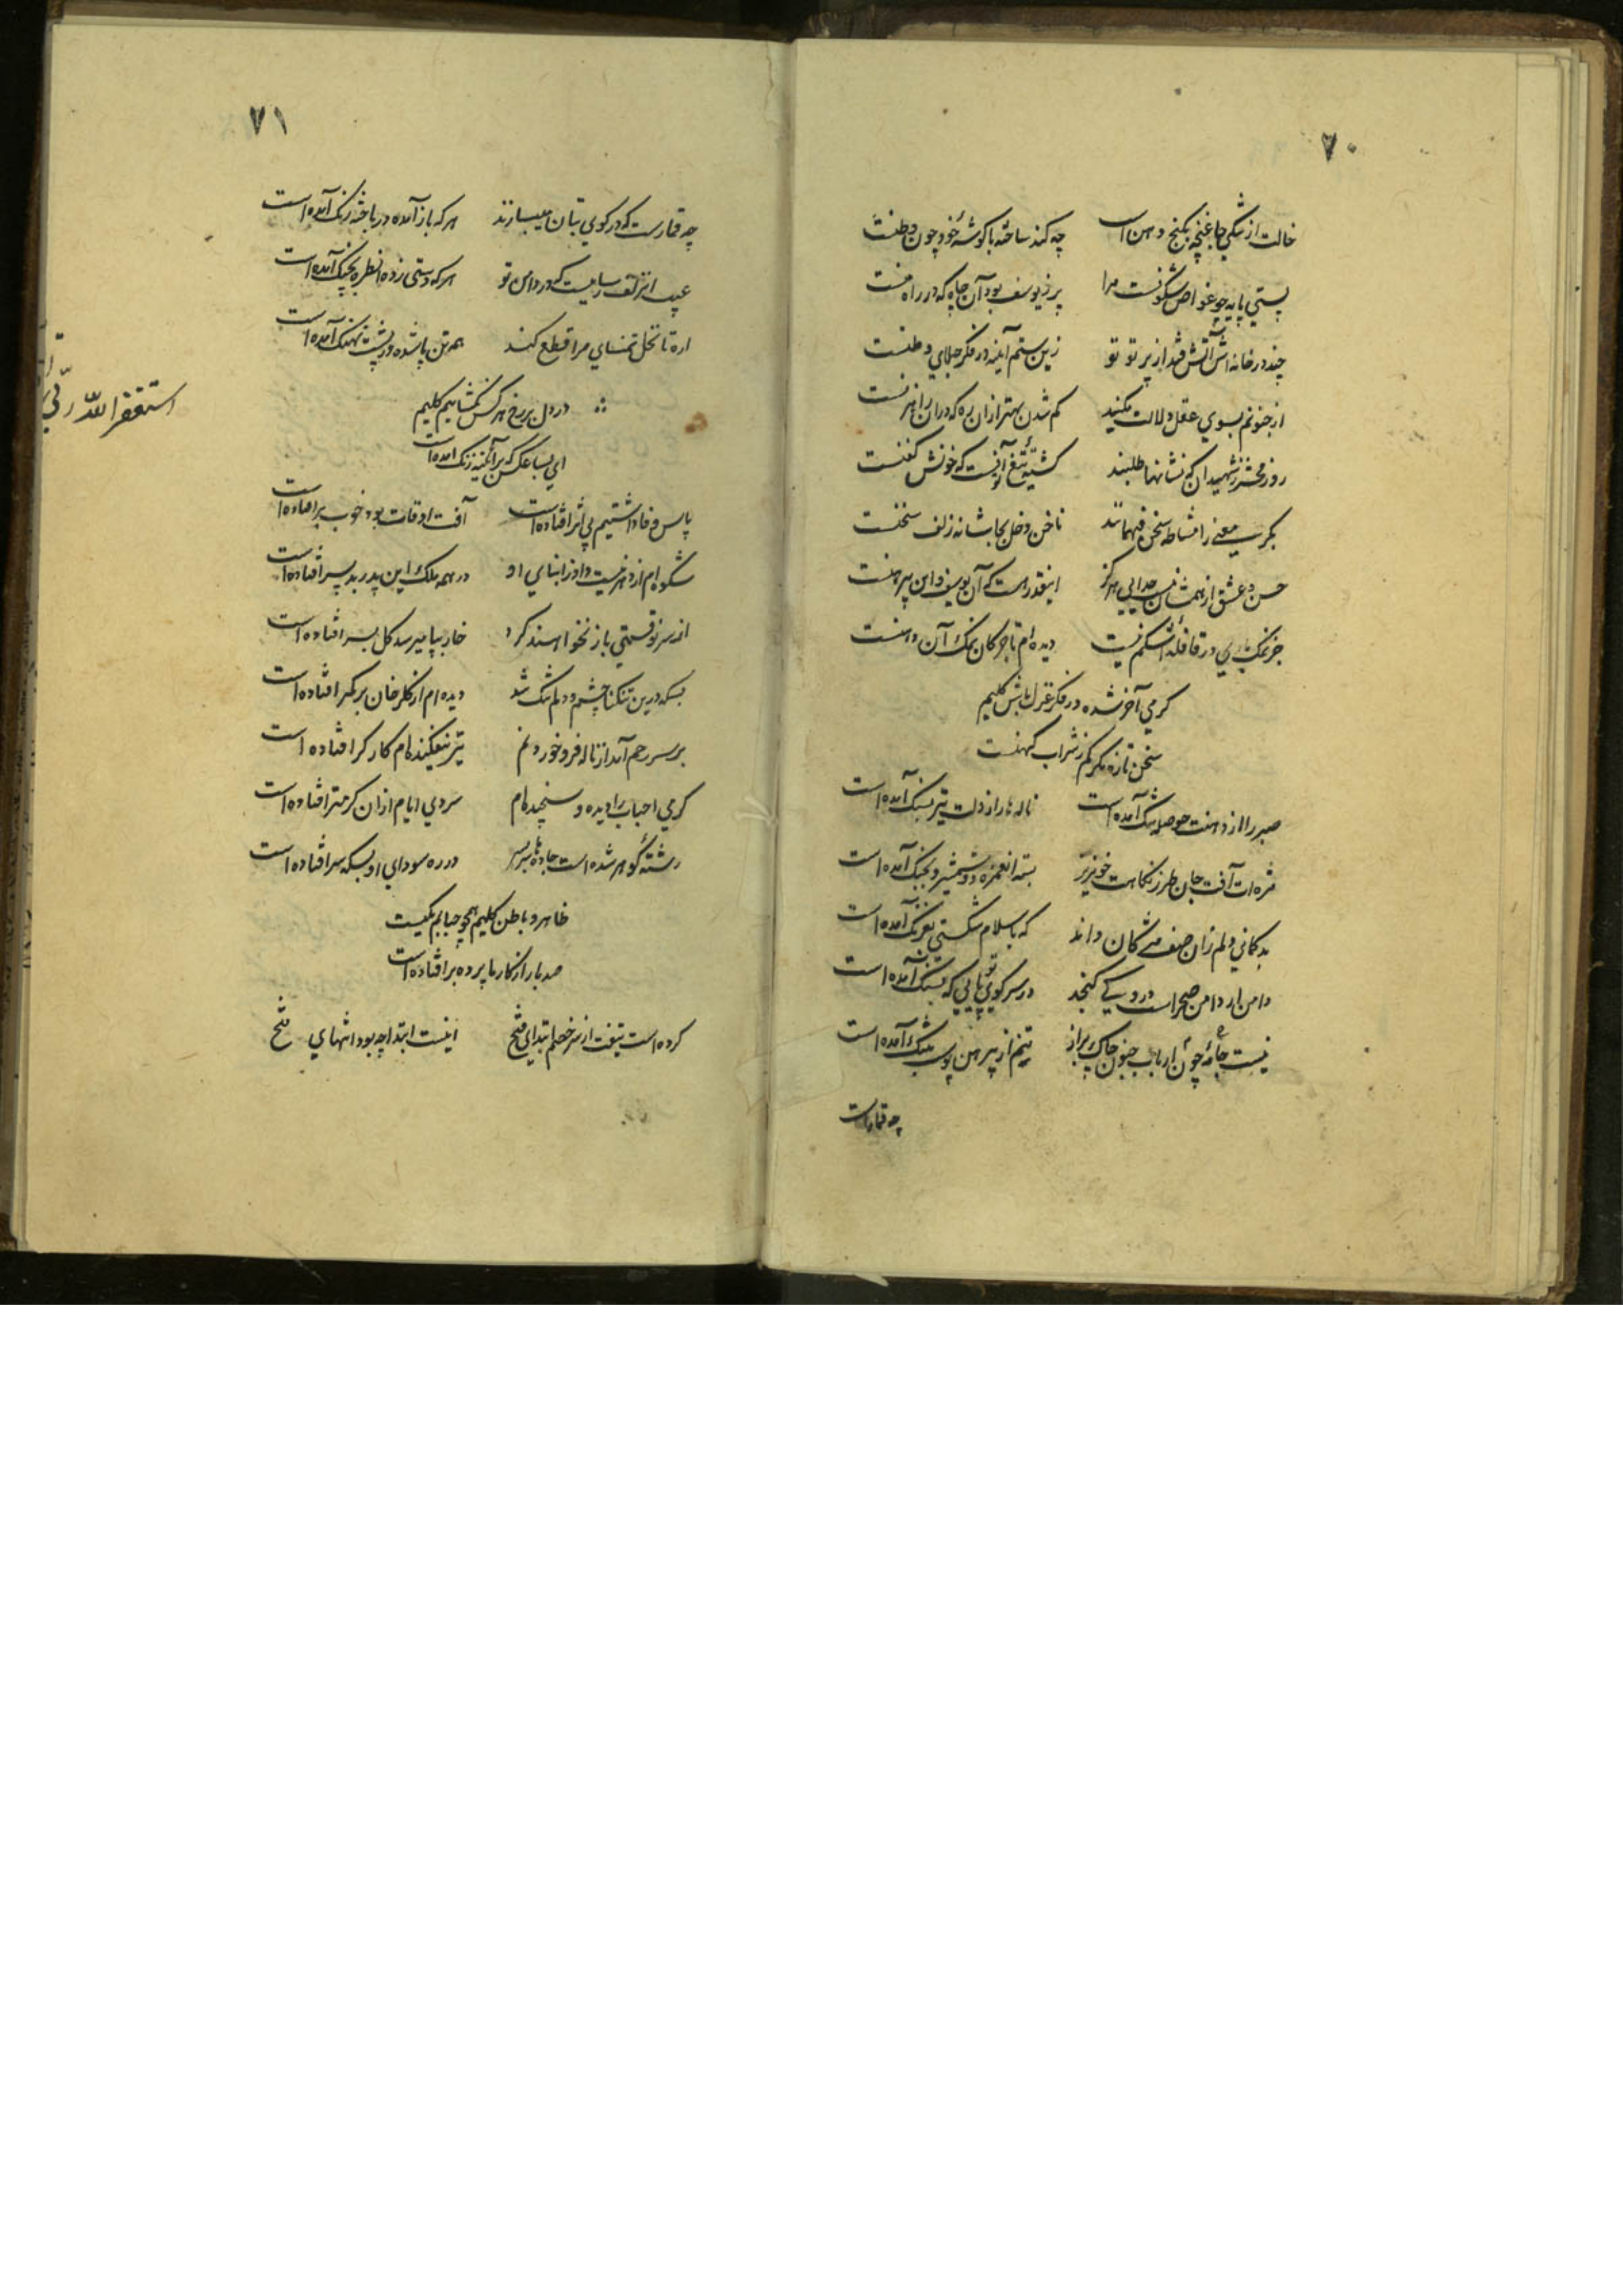 ۷۰
خالت از تنگی جا غنچه بکنج دهن است چه کند ساخته با گوشهٔ خود چون وطنست
پستی پایه چو غواص شکونست مرا پر ز یوسف بود آن چاه که در راه منست
چند در خانه اش آتش فتد از پرتو تو زین ستم آینه در فکر جلای وطنست
از جنونم بسوی عقل دلالت مکنید کم شدن بهتر از ان ره که در ان راهزنست
روز محشر ز شهیدان که نشانها طلبند کشتهٔ تیغ تو آنست که خونش کفنست
بکر معنی را مشاطه سخن فهمانند ناخن دخل بجا شانه زلف سخنست
حسن و عشق از هم شان نیست جدایی هرگز اینقدر هست که آن یوسف و این پیرهنست
جز نمک باری در قافلهٔ اشکم نیست دیده ام تاجر کان نمک آن دهنست
گرمی آخر شده در فکر غزل باش کلیم
سخن تازه مگر کم ز شراب کهنست
صبر را از دهنت حوصله تنگ آمده است ناله ها را ز دلت تیر بسنگ آمده است
مژه ات آفت جان طرز نگاهت خونریز بسته از غمزه دو شمشیر و بجنگ آمده است
بدگمانی دلم زان صف مژگان داند که باسلام شکستی ز فرنگ آمده است
دامن ار دامن صحراست درو کی گنجد در سر کوی تو پایی که بسنگ آمده است
نیست جامهٔ چون ارباب جنون چاک پراز تنم از پیرهن پوست بتنگ آمده است
چه قمار است
۷۱
چه قمارست که در کوی بتان میبازند هر که باز آمده در باخته رنگ آمده است
عیب از زلف رسا نیست که در دامن تو هر که دستی زده از طره بچنگ آمده است
اره تا نخل تمنای مرا قطع کند همه تن پا شده و ز پشت نهنگ آمده است
در دل بر رخ هر کس نگشاییم کلیم
ای بسا عکس که بر آئینه زنگ آمده است
پاس وفا داشتیم بی اثر افتاده است آفت اوقات بود خوب بر افتاده است
شکوه ام از دهر نیست داد ز ابنای او در همه ملک این پدر بد پسر افتاده است
از سر نو قسمتی باز نخواهند کرد خار بپا میرسد گل بسر افتاده است
بسکه درین تنگنا چشم و دلم تنگ شد دیده ام از گلرخان بر کمر افتاده است
بر سر رحم آمد از ناله فرو خوردنم تیر نیفکنده ام کارگر افتاده است
گرمی احباب را دیده و سنجیده ام سردی ایام از ان گرمتر افتاده است
رشتهٔ گوهر شده است جاده ها سربسر در ره سودای او بسکه سر افتاده است
ظاهر و باطن کلیم همچو حبابم یکیست
صد بار از کار ما پرده بر افتاده است
کرده است تیغت از سر خصم ابتدای فتح اینست ابتدا چه بود انتهای فتح
استغفر الله ربی